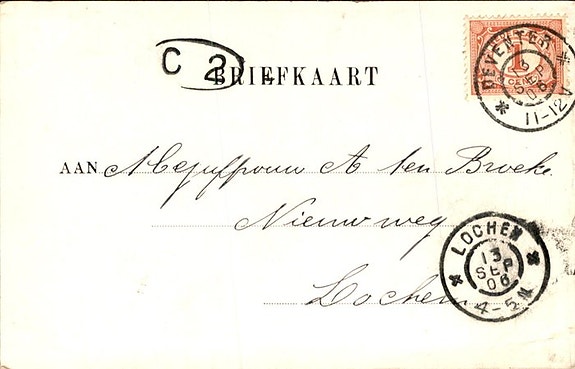 C 2
BRIEFKAART
1
CENT
DEVENTER
SEP
06
11-12 A
AAN Mejuffrouw A ten Broeke.
Nieuwweg
Lochem
LOCHEM
13
SEP
06
4-5 N